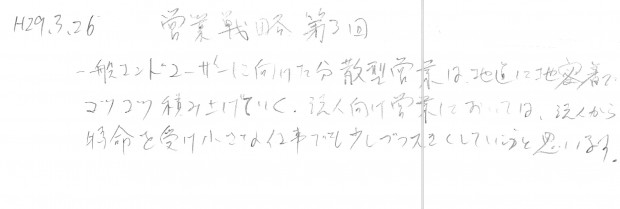 H29.3.26 営業戦略 第3回
一般エンドユーザーに向けた分散型営業は、地道に地密着で
コツコツ積み上げていく、法人向け営業においては、法人から
特命を受け小さな仕事でも少しづつ大きくしていこうと思います。